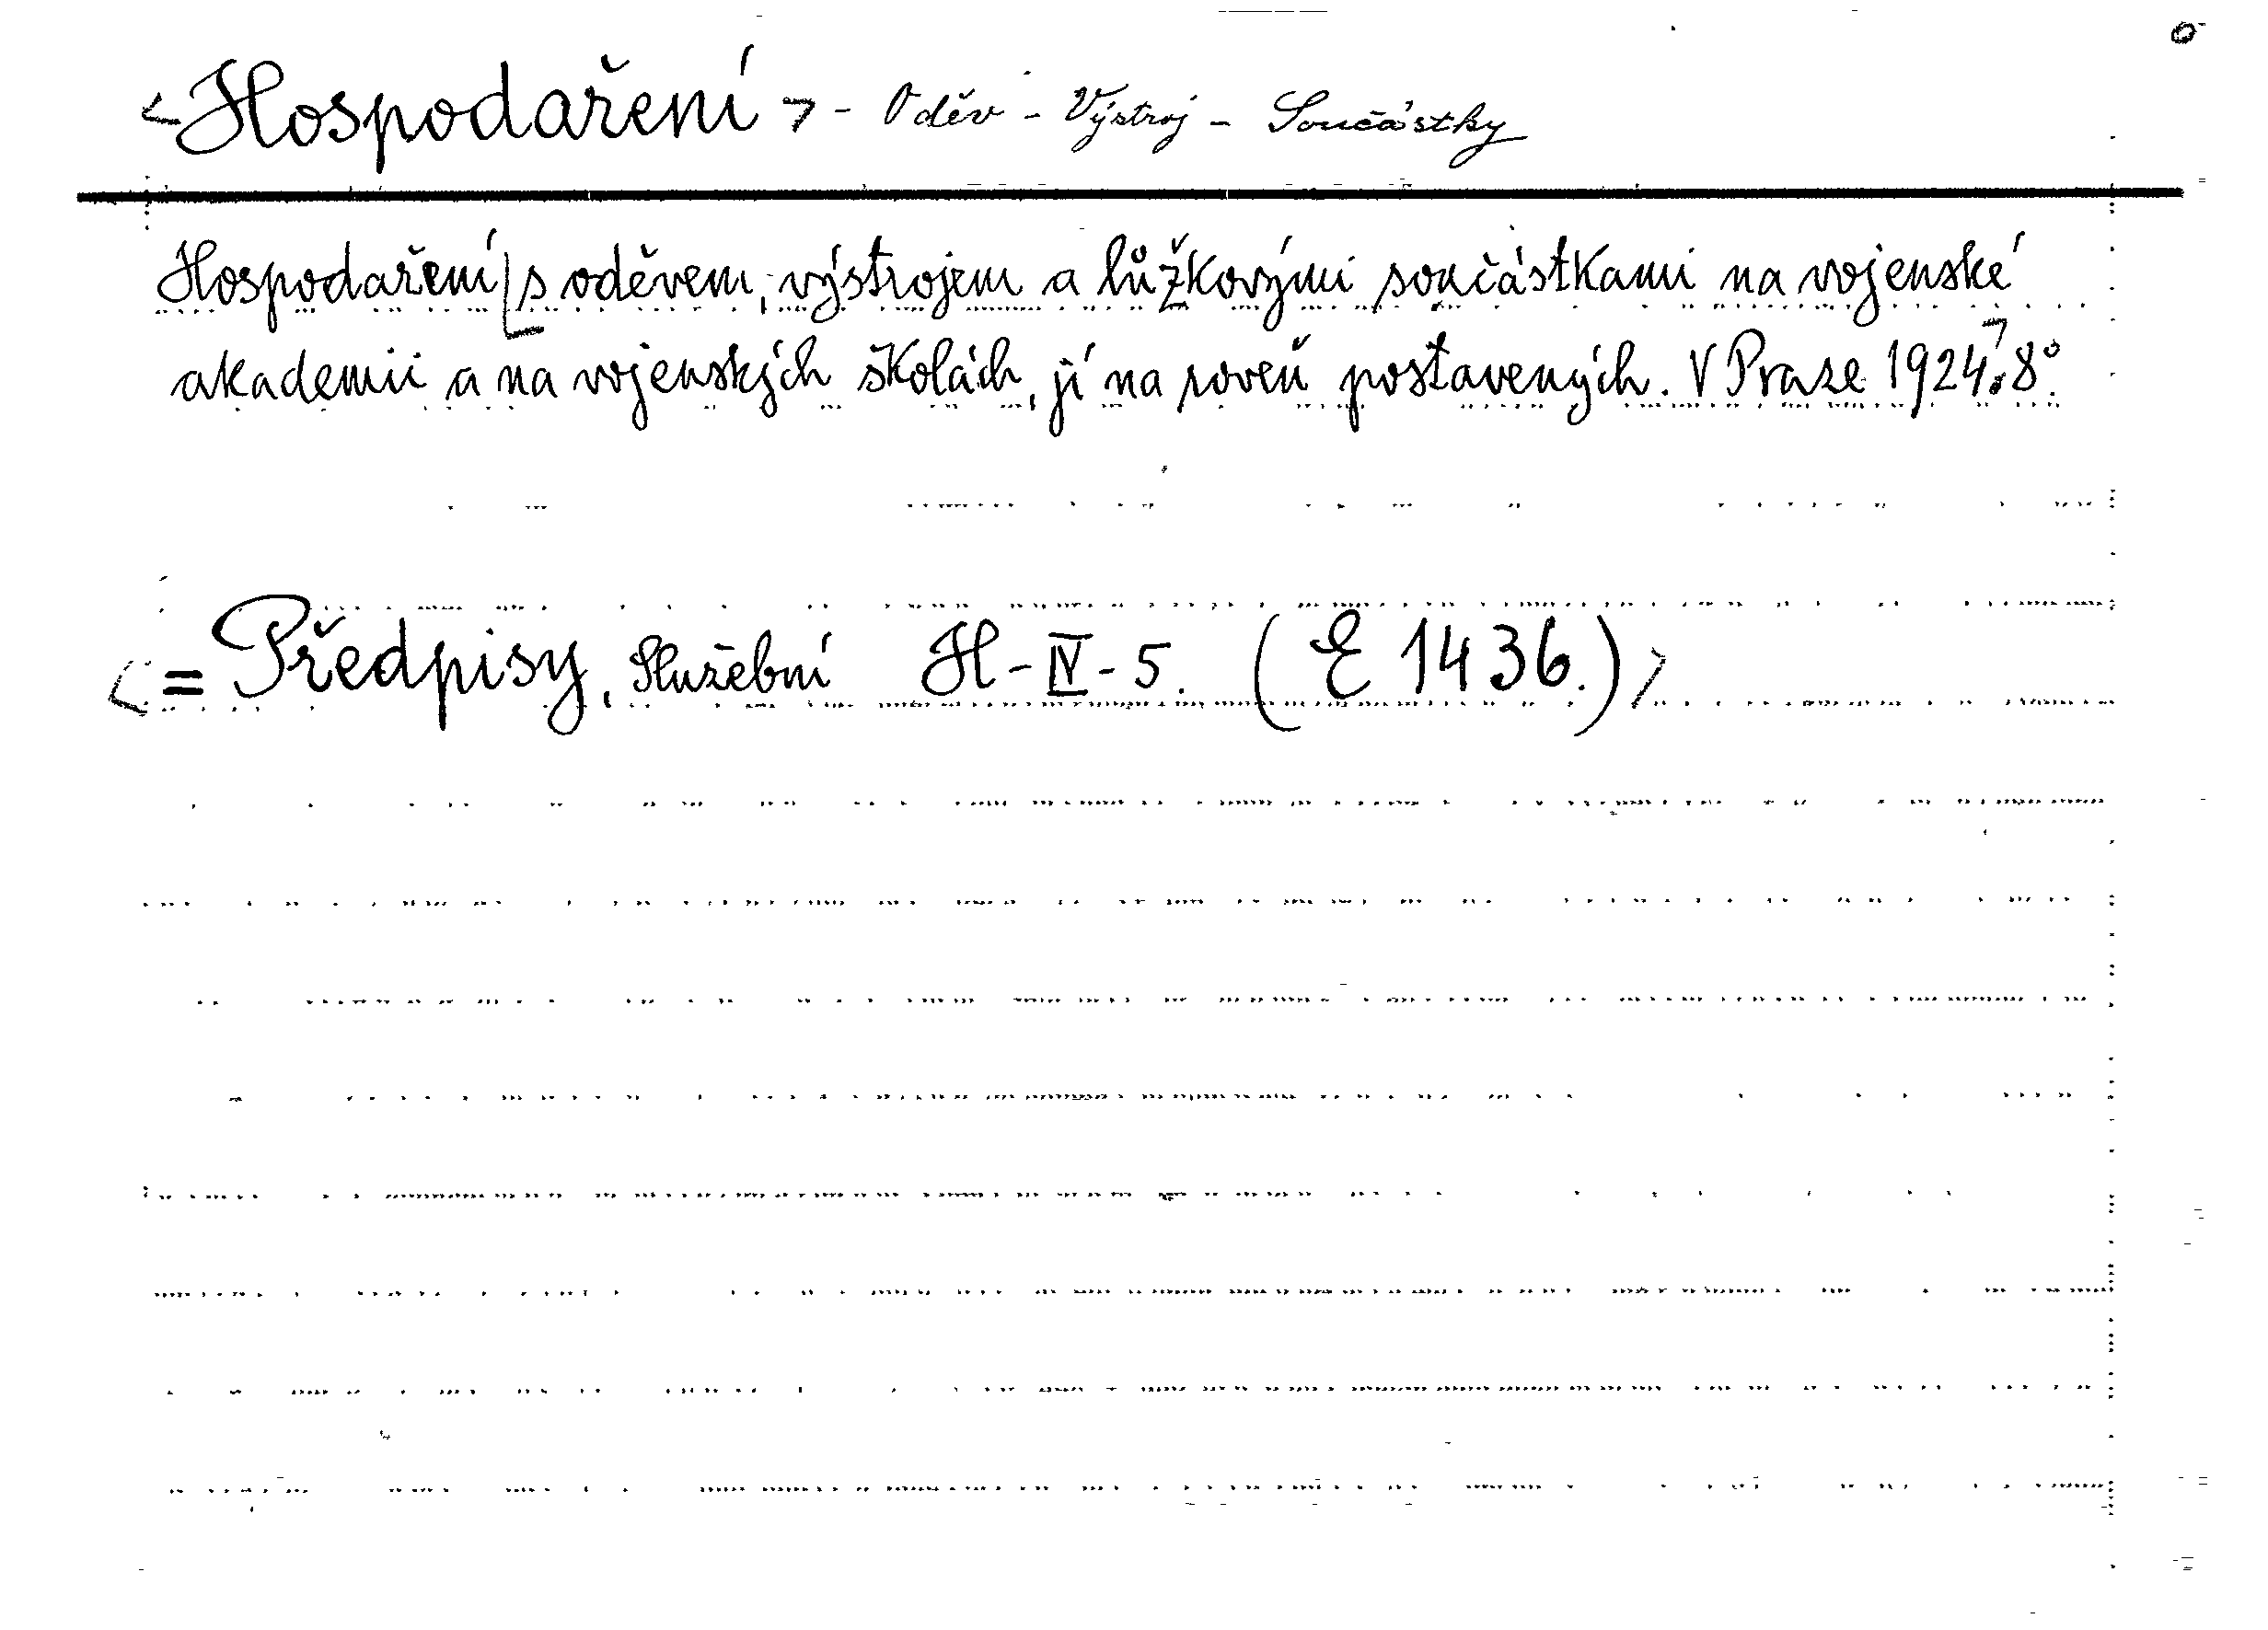 <Hospodaření> - Oděv - Výstroj - Součástky
Hospodaření [s oděvem, výstrojem a lůžkovými součástkami na vojenské
akademii a na vojenských školách, jí na roveň postavených. V Praze 1924]. 8°.
<= Předpisy, služební H-IV-5. (E 1436.)>